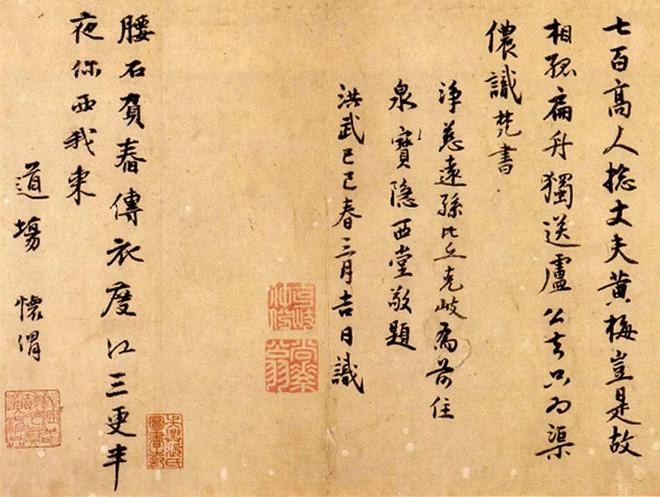 七百高人捴丈夫黄梅豈是故
相孤扁舟獨送盧公去只為渠
儂識梵書
淨慈遠孫比丘克岐為前住
泉寶隱西堂敬題
洪武己巳春三月吉日識
腰石賀春傳衣度江三更半
夜你西我東
道場 懷渭